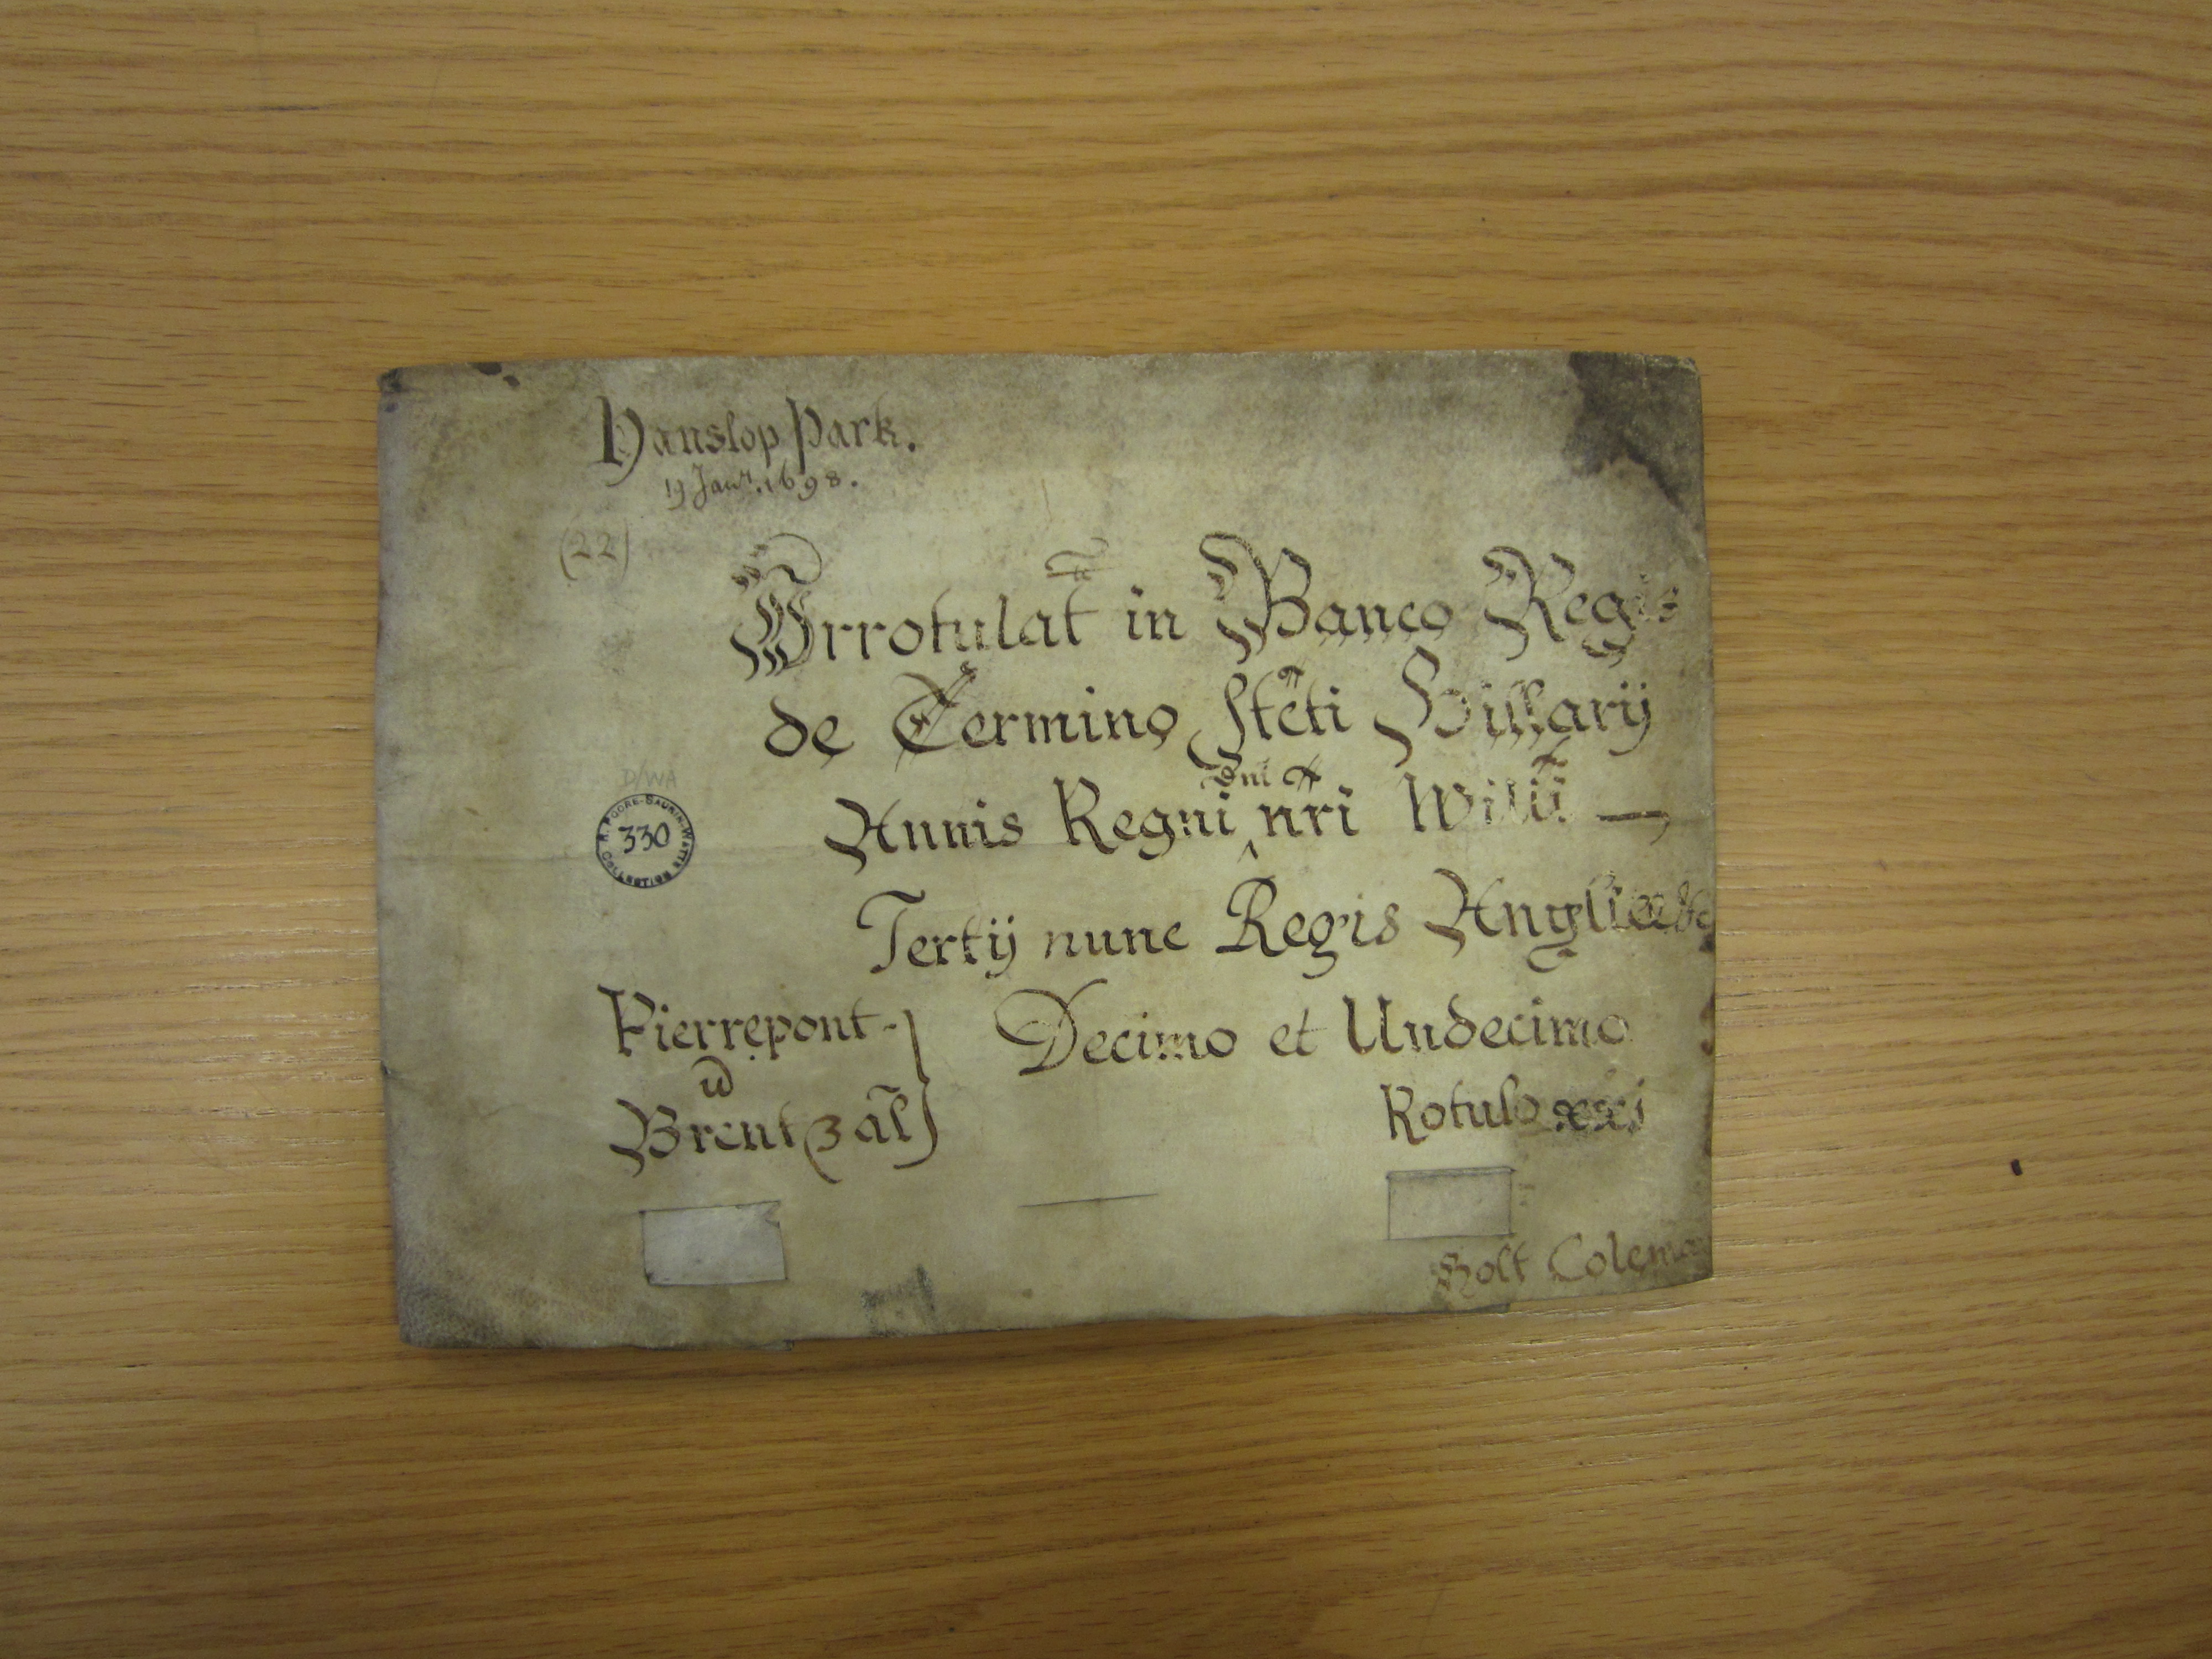 Hanslop Park.
19 Janry. 1698.
(22)
Irrotulat in Banco Regis
de Termino Sc̄ti Hillarij
Annis Regni ^Dni nr̄i Willi —
Tertij nunc Regis Angliæ &c
Decimo et Undecimo
Rotulo xxi
Pierrepont -
v
Brent & al̄
D/WA
R. POORE-SAURIN-WATTS COLLECTION
330
Holt Coleman